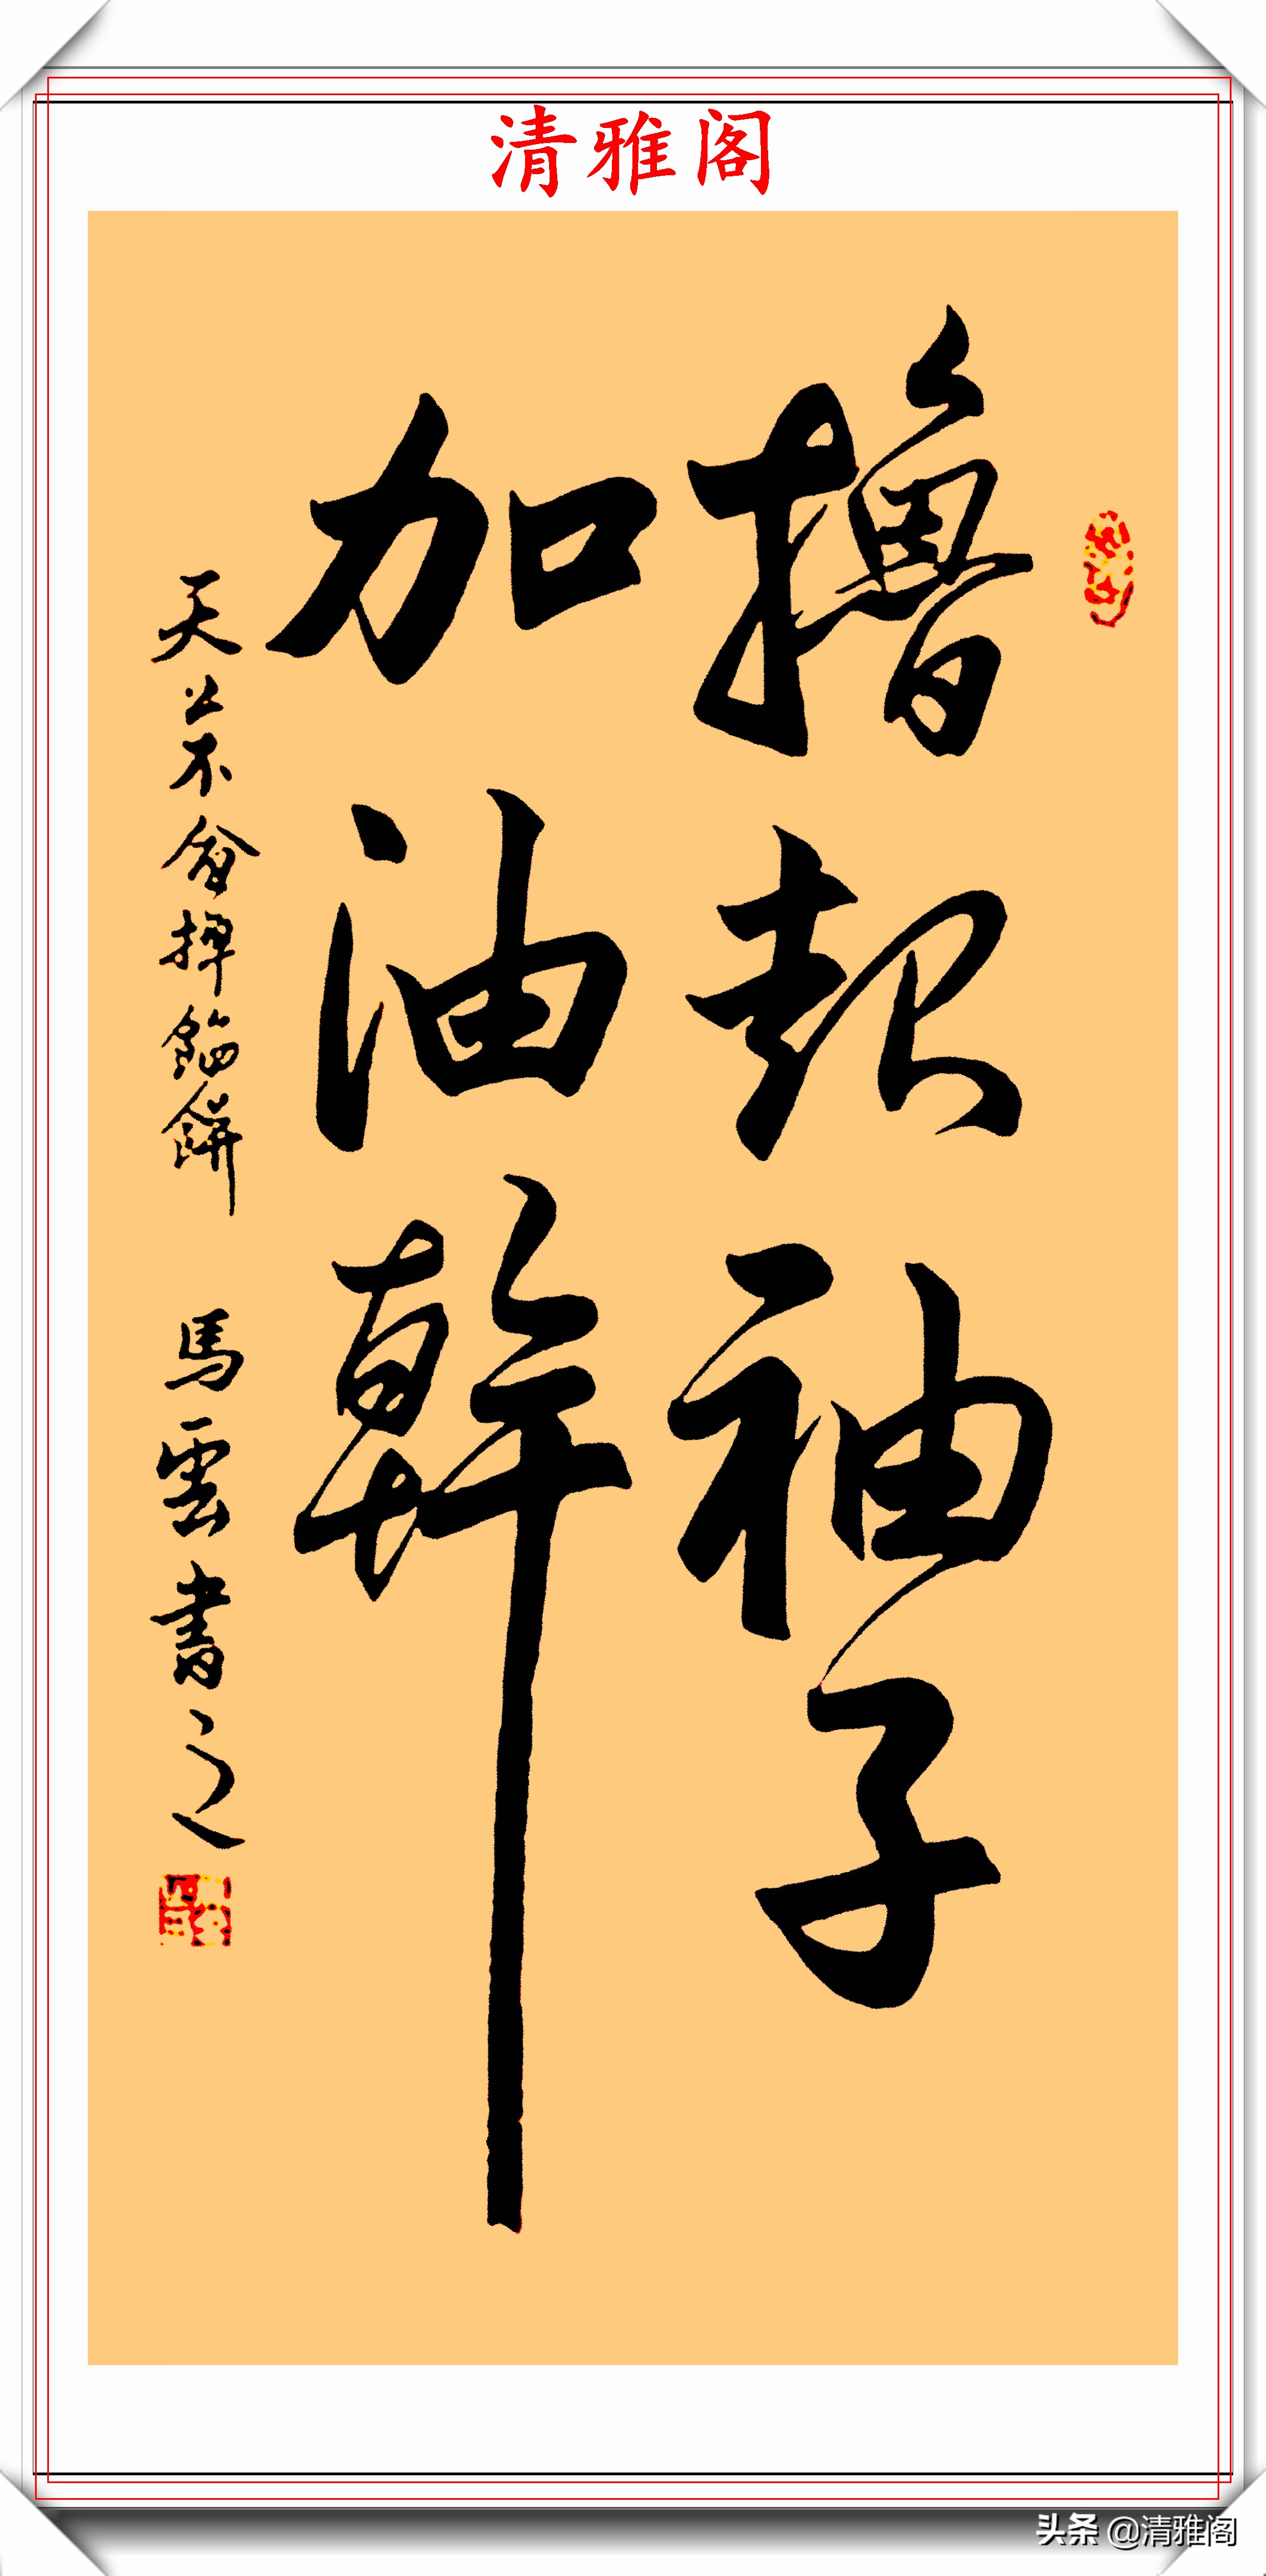 清雅阁
擼起袖子
加油幹
天上不會掉餡餅 馬雲書之
头条 @清雅阁